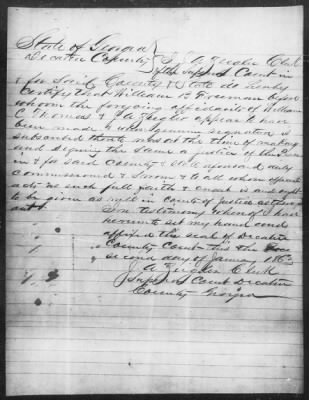 State of Georgia
Decatur County I J. A. Zeigler Clerk
of the Superior Court in
& for Said County & State do hereby
Certify that William B. Freeman before
whom the forgoing affidavits of William
Thomas & J. A. Zeigler appear to have
been made & whose genuine signature is
subscribed thereto was at the time of making
and Signing the Same a Justice of the Peace
in & for Said County & State aforesaid duly
commissioned & Sworn & to all whose official
acts as such full faith & credit is and ought
to be given as well in courts of justice as there
out
In testimony whereof I have
hereunto set my hand and
affixed the seal of Decatur
County Court this the
second day of January 186
J A Zeigler Clerk
Superior Court Decatur
County Georgia